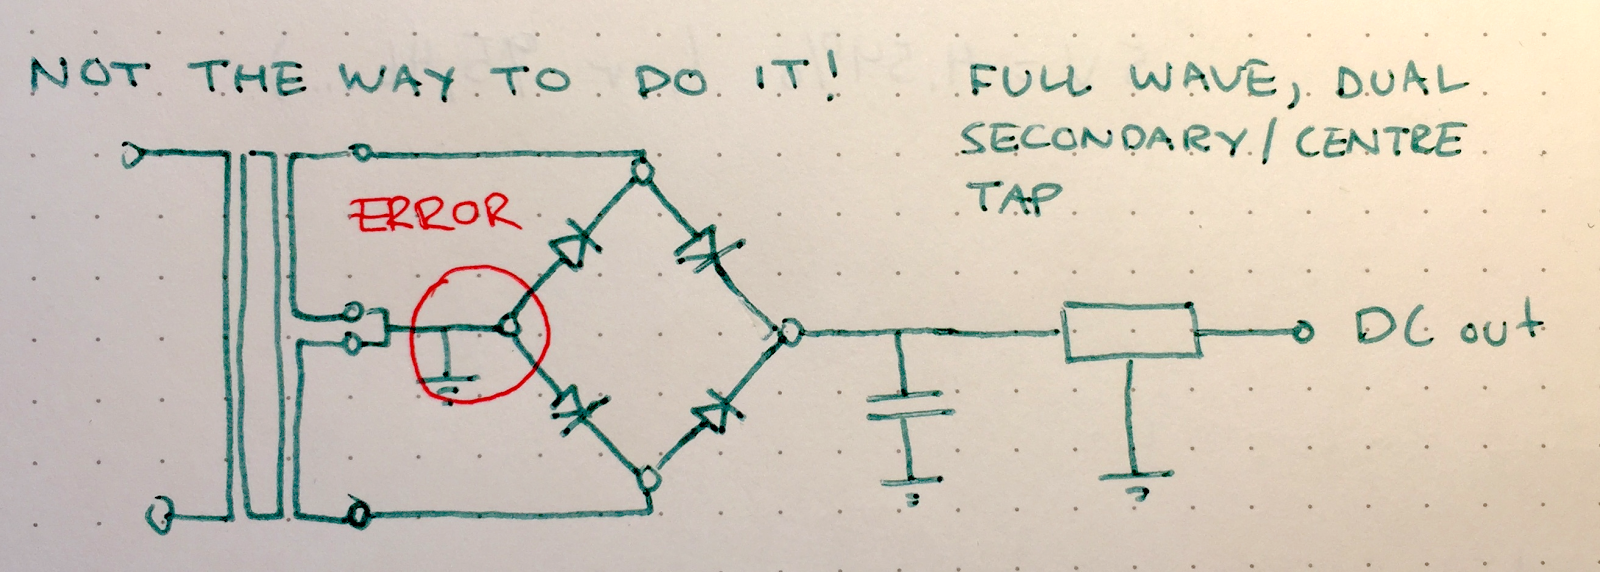 NOT THE WAY TO DO IT!
FULL WAVE, DUAL
SECONDARY/CENTRE
TAP
ERROR
DC out